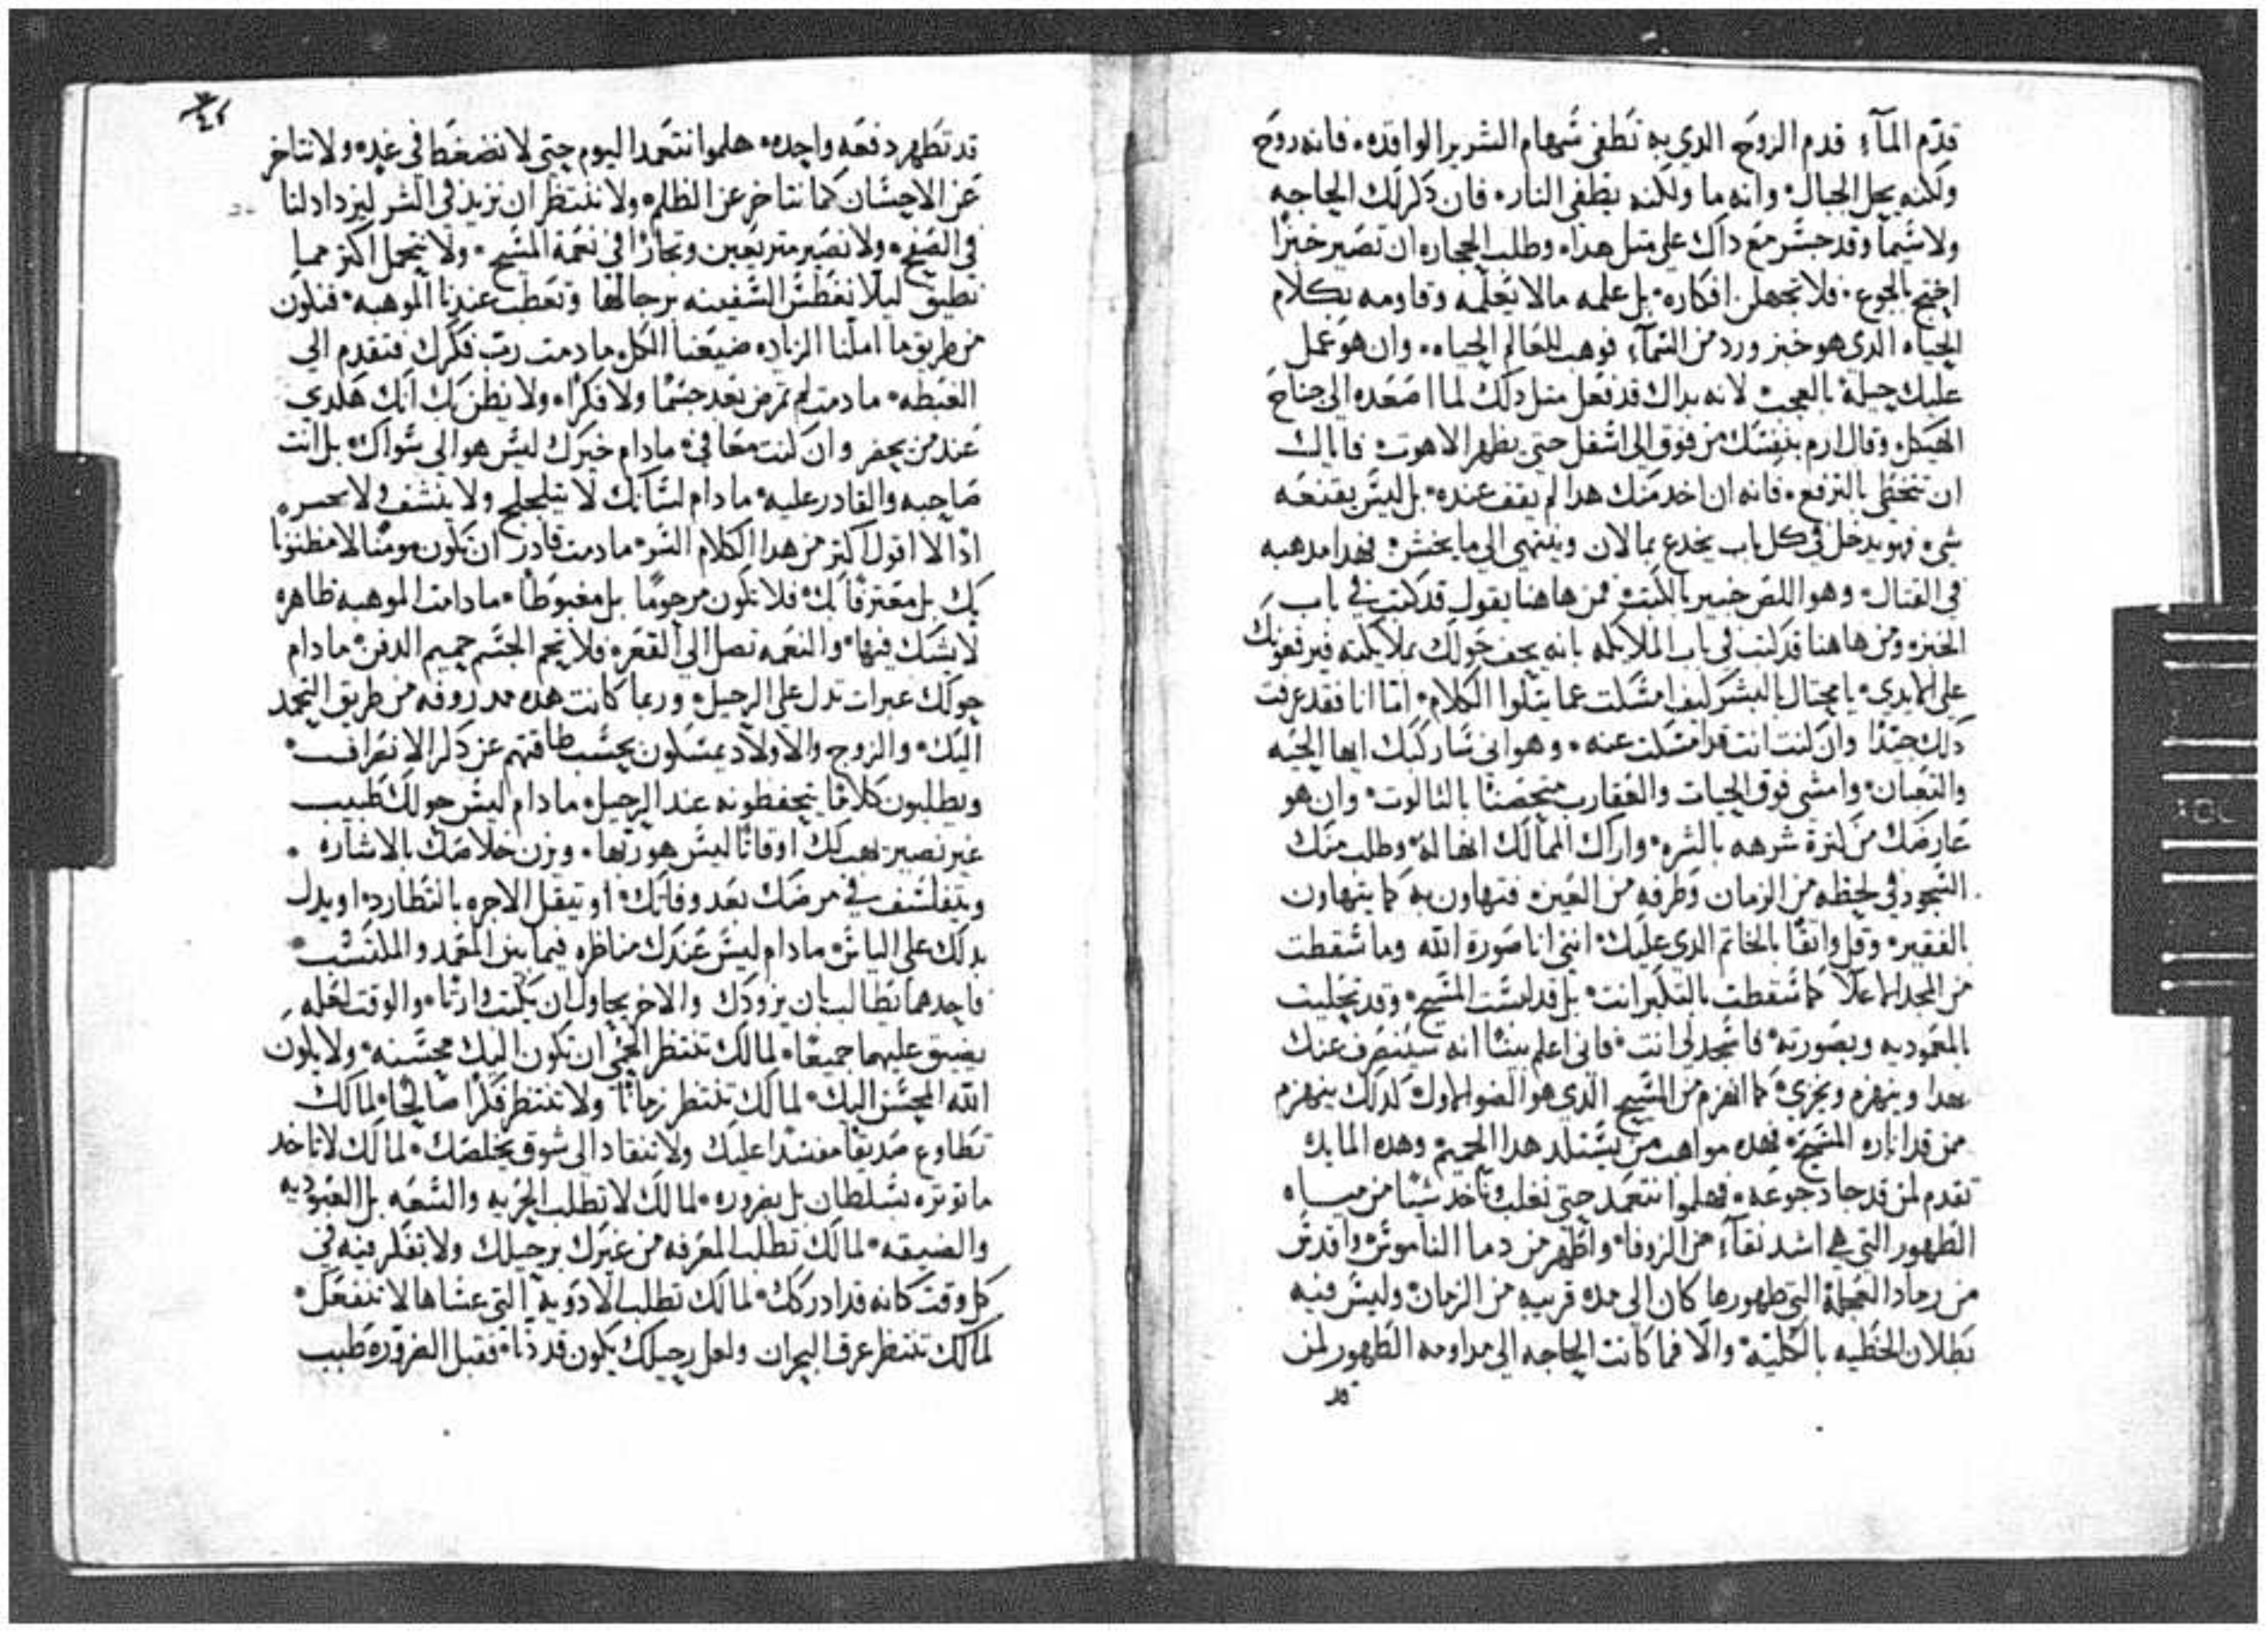 قدّم المآءِ قدم الروَح الدي به تطفى سهام الشرير الواقده فانه روَح
ولكنه يحل الجبال وانه ما ولكنه يطفى النار فان ذكر لك الحاجه
ولاسيما وقد جسر مع داك على متل هدا وطلب الحجاره ان تصير خبزا
احتج بالجوع فلا تجهلن افكاره بل علمه مالا يعلمه وقاومه بكلام
الحياه الدى هو خبز ورد من السمآءِ فوهب للعالم الحياه وان هو عمل
عليك حيلة بالعجب لانه بداك قد فعل متل دلك لما اصعده الى جناح
الهيكل وقال ارم بنفسك من فوق الى اسفل حتى يظهر الاهوت فاياك
ان تنخطى بالترفع فانه ان اخد منك هدا لم يقف عنده بل ليس يقنعه
شىء فهو يدخل في كل باب يخدع بما لان وينتهى الى ما يخشن فهدا مدهبه
في القتال وهو اللص خبير بالكتب فمن هاهنا يقول قد كتب في باب
الخبز ومن هاهنا قد كتب في باب الملايكه بانه يحف حولك بملايكته فيرفعونك
على الايدى يا محتال بالبشر ليف امسكت عما يتلوا الكلام امّا انا فقد عرفت
دلك جيدًا وان كنت انت قد امسكت عنه وهو انى سأركبك ايها الحيه
والتعبان وامشى فوق الحيات والعقارب متحصنًا بالتالوت وان هو
عارضك من كترة شرهه بالشره واراك الممالك انها له وطلب منك
السجود في لحظه من الزمان وطرفه من العين فتهاون به كما يتهاون
بالفقير وقل واثقًا بالخاتم الدي عليك انني انا صورة الله وما سقطت
من المجد الاعلا كما سقطت بالتكبر انت بل قد لبست المسيح وقد تجليت
بالمعموديه وبصورته فاسجد لى انت فانى اعلم بيننا انه سينصرف عنك
بهدا وينهزم ويخزى كما انهزم من المسيح الدي هو الضو الاول كدلك ينهزم
ممن قد اناره المسيح فهده مواهب من يستلد هدا الحميم وهده المايده
تقدم لمن قد جاد جوعه فهلموا نتعمد حتى نغلب وناخد شيئا من مياه
الطهور التى هي اشد نقآءِ من الزوفا واطهر من دما الناموس واقدس
من رماد العجلة التى طهورها كان الى مده قريبه من الزمان وليس فيه
بطلان الخطيه بالكليّه والا فما كانت الحاجه الى مداومه الطهور لمن
قد
قد تطهر دفعه واحده هلموا نتعمد اليوم حتى لا نضغط في غد ولا نتاخر
عن الاحسان كما نتاخر عن الظلم ولا ننتظر ان نزيد فى الشر ليزداد لنا
في الصفح ولا نصير متربعين وتجارًا في نعمة المسيح ولا نتحمل اكتر مما
نطيق ليلا نغطس السفينه برجالها وتعطب عندنا الموهبه فنكون
من طريق ما املنا الزياده ضيعنا الكل ما دمت رب فكرك فتقدم الى
الغبطه ما دمت لم تمرض بعد جسمًا ولا فكرًا ولا يظن بك انك هكدي
عند من يحضر وان كنت معافى ما دام خيرك ليس هو الى سواك بل انت
صاحبه والقادر عليه ما دام لسانك لا يتلجلج ولا ينشف ولا
ادا لا اقول اكتر من هدا الكلام السر ما دمت قادر ان تكون مومنًا لا مظنونا
بك بل معترفًا بك فلا تكون مرحومًا بل مغبوطًا ما دامت الموهبه ظاهره
لا يشك فيها والنعمه تصل الى القعر فلا يحم الجسم حميم الدفن ما دام
حولك عبرات تدل على الرحيل وربما كانت هده مدروفه من طريق التحمد
اليك والزوج والاولاد يمسكون بحسب طاقتهم عن دكر الانصراف
ويطلبون كلامًا يتحفظونه عند الرحيل ما دام ليس حولك طبيب
غير نصير يهب لك اوقاتًا ليس هو ربها ويزن خلاصك بالاشاره
ويتفلسف في مرضك بعد وفاتك او يتقل الاجره بانتظارده او يدل
بدلك على الياس ما دام ليس عندك مناظره فيما بين المعمد والملتمس
فاحدهما يطالب بان يزودك والاخر يحاول ان يكتب وارثا والوقت لعله
يضيق عليهما جميعًا لمالك تنتظر الحمى ان تكون اليك محسنه ولا يكون
الله المحسن اليك لمالك تنتظر زمانًا ولا تنتظر فكرًا صالحًا لمالك
تطاوع صديقًا مفسدا عليك ولا تنقاد الى شوق يخلصك لمالك لا تاخد
ما توتره بسلطان بل بضروره لمالك لا تطلب الحريه والسعه بل العبوديه
والضيقه لمالك تطلب المعرفه من غيرك برحيلك ولا تفكر فيه في
كل وقت كانه قد ادركك لمالك تطلب الادويه التى عساها لا تنفعك
لمالك تنتظر عرق البحران ولعل رحيلك يكون قد دنا فقبل الضروره طبب